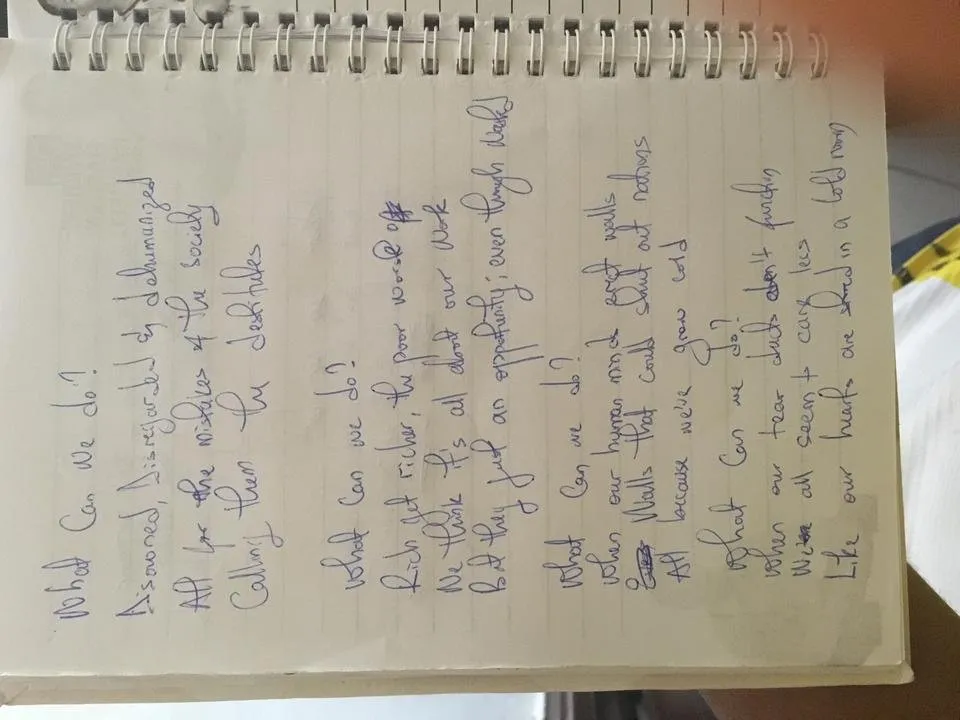 What Can We do?
Disowned, Disregarded & dehumanized
All for the mistakes of the society
Calling them the destitutes
What Can we do?
Rich get richer, the poor worse off
We think It's all about our work
But they just an opportunity; even though
What Can we do?
When our human minds erect walls
Walls that could shut out nations
All because we've grown cold
What Can we do?
When our tear ducts don't function
We all seem to care less
Like our hearts are in a cold room